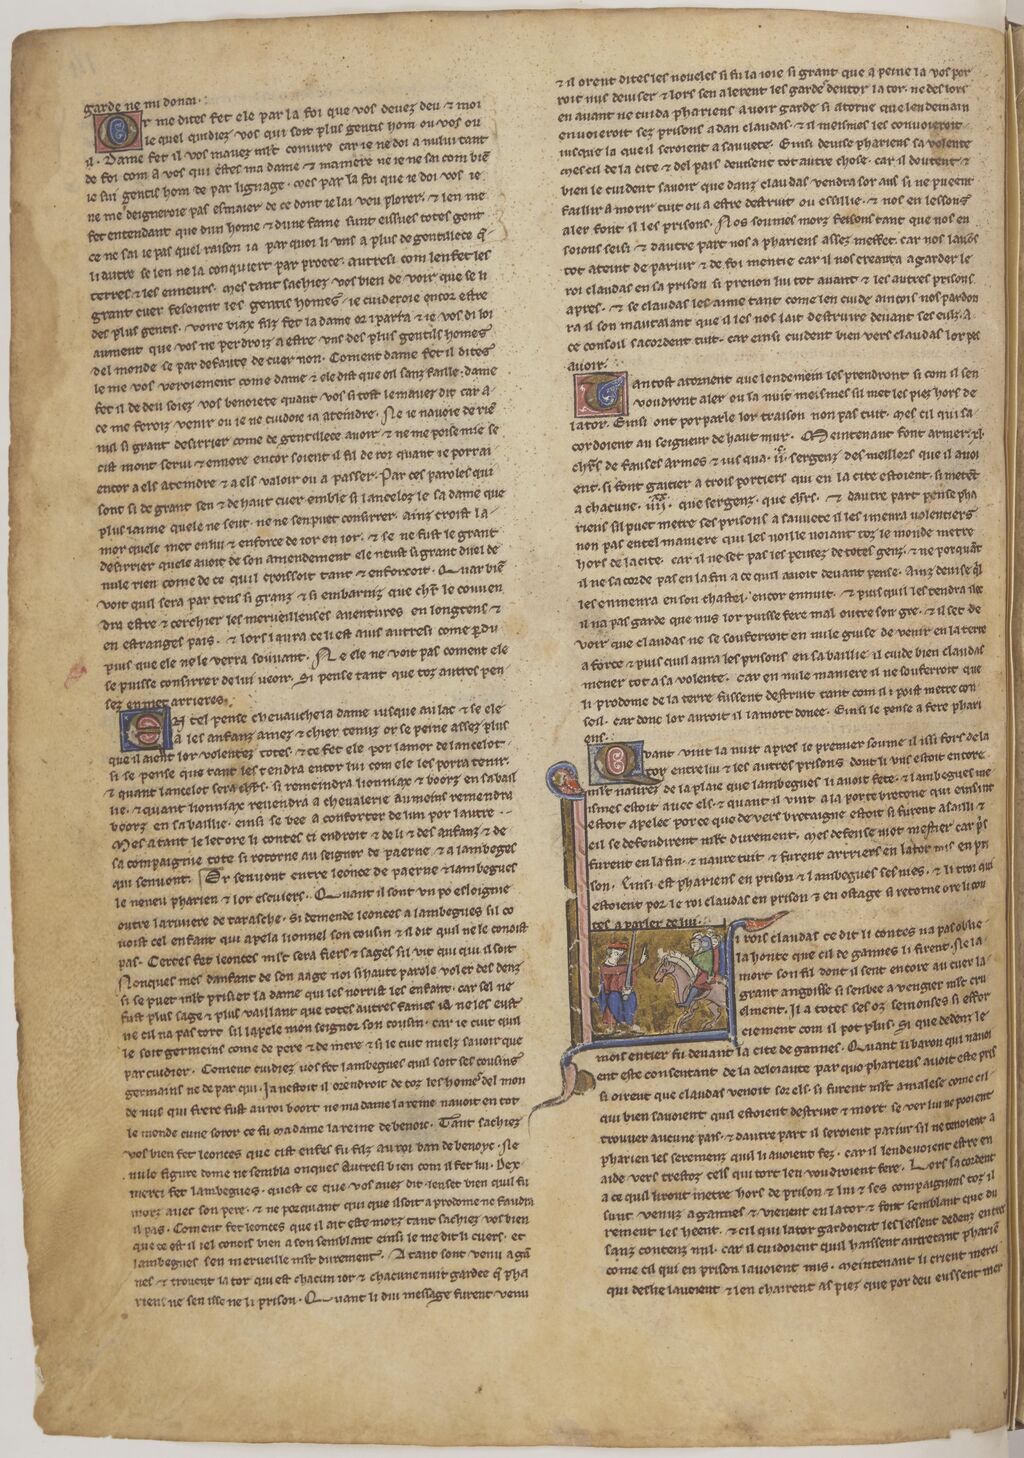 garde ne mi donai.
Or me dites fet ele par la foi que vos devez deu & moi
le quel quidiez vos qui soit plus gentis hom ou vos ou
il. Dame fet il vos mavez mlt conjure car je ne doi a nului tant
de foi com a vos qui estes ma dame & maniere ne je ne sai com bie
je sui gentis hom de par lignage. Mes par la foi que je doi vos je
ne me deigneroie pas esmaier de ce dont je lai veu plorer. & len me
fet entendant que dun home & dune fame sunt eissues totes gent
ce ne sai je pas quel raison ia par quoi li uns a plus de gentilece q
li autre se len ne la conquiert par proece. autresi com len fet les
terres & les enneurs. Mes tant sachiez vos bien de voir que se li
grant cuer fesoient les gentis homes. ie cuideroie encor estre
des plus gentis. Voire viax filz fet la dame or i parra & ie vos di loi
aument que vos ne perdroiz a estre uns des plus gentils homes
del monde se par defaute de cuer non. Coment dame fet il dites
le me vos veroiement come dame & ele dist que oil sanz faille. dame
fet il de deu soiez vos benoiete quant vos si tost le mavez dit car a
ce me feroiz venir ou ie ne cuidoie ia ateindre. Ne ie navoie de rie
nul si grant desirrier come de gentillece avoir & ne me poise mie se
cist mont servi & ennore encor soient il fil de roi quant ie porrai
encor a els ateindre & a els valoir ou a passer. Par ces paroles qui
sont si de grant sen & de haut cuer emble si lanceloz le sa dame que
plus laime quele ne seut. ne ne sen puet consirrer. Ainz croist la
mor quele met en lui & enforce de ior en ior. & se ne fust le grant
desirrier quele avoit de son amendement ele neust si grant duel de
nule rien come de ce quil croissoit tant & enforcoit. Quar bie
voit quil sera par tens si granz & si embarniz que chr le coven
dra estre & cerchier les merveilleuses aventures en longtens &
en estranges pais. & lors laura ce li est avis autresi come pdu
puis que ele ne le verra souvant. Ne ele ne voit pas coment ele
se puisse consirrer de lui veoir. Si pense tant que toz autres pen
sez en met arrieres.
En tel pense chevauche la dame iusque au lac & se ele
a les anfanz amez & chier tenuz or se peine assez plus
que il aient lor volentez totes. & ce fet ele por lamor de lancelot.
si se pense que tant les tendra entor lui com ele les porra tenir.
& quant lancelot sera chrs. si remeindra lionniax & boorz en sa bail
lie. & quant lionniax revendra a chevalerie au moins remendra
boorz en sa baillie. einsi se bee a conforter de lun por lautre
Mes a tant le lere ore li contes ci endroit & de li & des anfanz & de
sa compaignie tote si retorne au seignor de paerne & a lambeges
qui senvont. Or senvont entre leonce de paerne & lambegues
le neveu pharien & lor escuiers. Quant il sont un po esloignie
outre la riviere de tarasche. si demende leonces a lambegues sil co
noist cel enfant qui apela lionnel son cousin & il dit quil ne le conoist
pas. Certes fet leonces mlt sera fiers & sages sil vit qui que il soit
Nonques mes danfant de son aage noi si haute parole voler des denz
si se puet mlt prisier la dame qui les norrist les enfanz. car sel ne
fust plus sage & plus vaillant que totes autres fames ia ne les eust
ne cil na pas tort sil lapele mon seignor son cousin. car ie cuit quil
le soit germeins come de pere & de mere & si le cuit mielz savoir que
par cuidier. Coment cuidiez vos fet lambegues quil soit ses cousins
germains ne de par qui. Ja nestoit il orendroit de toz les homes del mon
de nus qui frere fust au roi boort ne ma dame la reine navoit en tot
le monde cune soror ce fu ma dame la reine de benoic. Tant sachiez
vos bien fet leonces que cist enfes fu filz au roi ban de benoyc. Ne
nule figure dome ne sembla onques autresi bien com il fet lui. Dex
merci fet lambegues. quest ce que vos avez dit. ien set bien quil fu
morz avec son pere. & ne porquant qui que il soit a prodome ne faudra
il pas. Coment fet leonces que il ait este morz tant sachiez vos bien
que ce est il iel conois bien a son semblant einsi le me dit li cuers. et
lambegues sen merveille mlt durement. A tant sont venu a ga
nes & trovent la tor qui est chacun ior & chacune nuit gardee q pha
riens ne sen isse ne li prison. Quant li dui message furent venu
& il orent dites les noveles si fu la ioie si grant que a peine la vos por
roit nus deviser & lors sen alerent les garde dentor la tor. ne des lors
en avant ne cuida phariens avoir garde si atorne que lendemain
envoieroit ses prisons a dan claudas. & il meismes les convoieroit
iusque la que il seroient a sauvete. Einsi devise phariens sa volente
mes cil de la cite & del pais devisent tot autre chose. car il doutent &
bien le cuident savoir que danz claudas vendra sor aus si ne pueent
faillir a morir tuit ou a estre destruit ou essillie. & nos en lessons
aler font il les prisons. Nos soumes morz fesons tant que nos en
soions seisi & dautre part nos a phariens assez meffet. car nos lavons
tot ateint de pariur & de foi mentie car il nos creanta a garder le
roi claudas en sa prison si prenon lui tot avant & les autres prisons
apres. & se claudas les aime tant come len cuide aincois nos pardon
ra il son mautalant que il les nos lait destruire devant ses eulz. A
ce consoil sacordent tuit. car einsi cuident bien vers claudas lor pes
avoir.
Tantost atornent que lendemein les prendront si com il sen
voudront aler ou la nuit meismes sil met les piez hors de
la tor. Einsi ont porparle lor traison non pas tuit. Mes cil qui sa
cordoient au seigneur de haut mur. Meintenant font armer. xl.
chrs de fauses armes & ius qua. ii. sergenz des meillors que il avoi
ent. si font gaitier a trois portiers qui en la cite estoient. si metet
a chacune. iiii. que sergenz. que chrs. & dautre part pense pha
riens sil puet metre ses prisons a sauvete il les i menra volentiers
non pas en tel maniere qui les voille voiant toz le monde metre
hors de la cite. car il ne set pas les pensez de totes genz. & ne porquat
il ne sacorde pas en la fin a ce quil avoit devant pense. Ainz devise ql
les enmenra en son chastel. encor ennuit. & puis quil les tendra ilec
il na pas garde que nus lor puisse fere mal outre son gre. & il set de
voir que claudas ne se soufferroit en nule guise de venir en la terre
a force & puis quil aura les prisons en sa baillie il cuide bien claudas
mener tot a sa volente. car en nule maniere il ne soufferoit que
li prodome de la terre fussent destruit tant com il i poist metre con
seil. car donc lor auroit il la mort donee. Einsi le pense a fere phari
ens.
Quant vint la nuit apres le premier soume il issi fors de la
tor entre lui & les autres prisons dont li uns estoit encore
mlt navrez de la plaie que lambegues li avoit fete. & lambegues me
ismes estoit avec els. & quant il vint a la porte bretone qui einsint
estoit apelee por ce que devers bretaigne estoit si furent asailli &
cil se defendirent mlt durement. Mes defense niot mestier car ps
furent en la fin. & navre tuit & furent arriers en la tor mis en pri
son. Einsi est phariens en prison & lambegues ses nies. & li troi qui
estoient por le roi claudas en prison & en ostage si retorne ore li con
tes a parler de lui.
Li rois claudas ce dit li contes na pas oblie
la honte que cil de gannes li firent. Ne la
mort son fil dont il sent encore au cuer la
grant angoisse si senbee a vengier mlt cru
elment. Il a totes ses oz semonses si effor
ciement com il pot plus. Si que dedenz le
mois entier fu devant la cite de gannes. Quant li baron qui navoi
ent este consentant de la deloiaute par quoi phariens avoit este pris
si oirent que claudas venoit sor els. si furent mlt amalese come cil
qui bien savoient quil estoient destruit & mort se vers lui ne pooient
trouver aucune pais. & dautre part il seroient pariur sil ne tenoient a
pharien les seremenz quil li avoient fez. car il len devoient estre en
aide vers trestoz cels qui tort len voudroient fere. Lors sacordent
a ce quil liront metre hors de prison & lui & ses compaignons toz il
sunt venuz a gannes & vienent en la tor & font semblant que du
rement les heent. & cil qui la tor gardoient les lessent dedenz entrer
sanz contenz nul. car il cuidoient quil haissent autretant pharien
come cil qui en prison lavoient mis. Meintenant li crient merci
qui deslie lavoient & len chairent as piez que por deu eussent mer